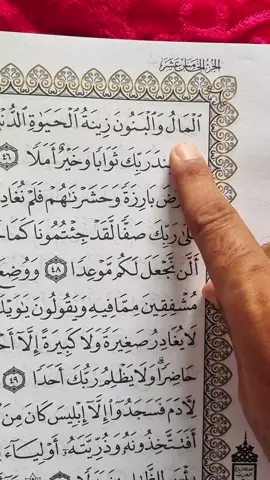 الجزء الخامس عشر
ٱلۡمَالُ وَٱلۡبَنُونَ زِينَةُ ٱلۡحَيَوٰةِ ٱلدُّنۡيَا
رَبِّكَ ثَوَابٗا وَخَيۡرٌ أَمَلٗا ٤٦
بَارِزَةٗ وَحَشَرۡنَٰهُمۡ فَلَمۡ نُغَادِرۡ
رَبِّكَ صَفّٗا لَّقَدۡ جِئۡتُمُونَا كَمَا
أَلَّن نَّجۡعَلَ لَكُم مَّوۡعِدٗا ٤٨ وَوُضِعَ
مُشۡفِقِينَ مِمَّا فِيهِ وَيَقُولُونَ يَٰوَيۡلَتَنَا
لَا يُغَادِرُ صَغِيرَةٗ وَلَا كَبِيرَةً إِلَّآ
حَاضِرٗاۗ وَلَا يَظۡلِمُ رَبُّكَ أَحَدٗا ٤٩
لِأٓدَمَ فَسَجَدُوٓاْ إِلَّآ إِبۡلِيسَ كَانَ مِنَ
أَفَتَتَّخِذُونَهُۥ وَذُرِّيَّتَهُۥٓ أَوۡلِيَآءَ